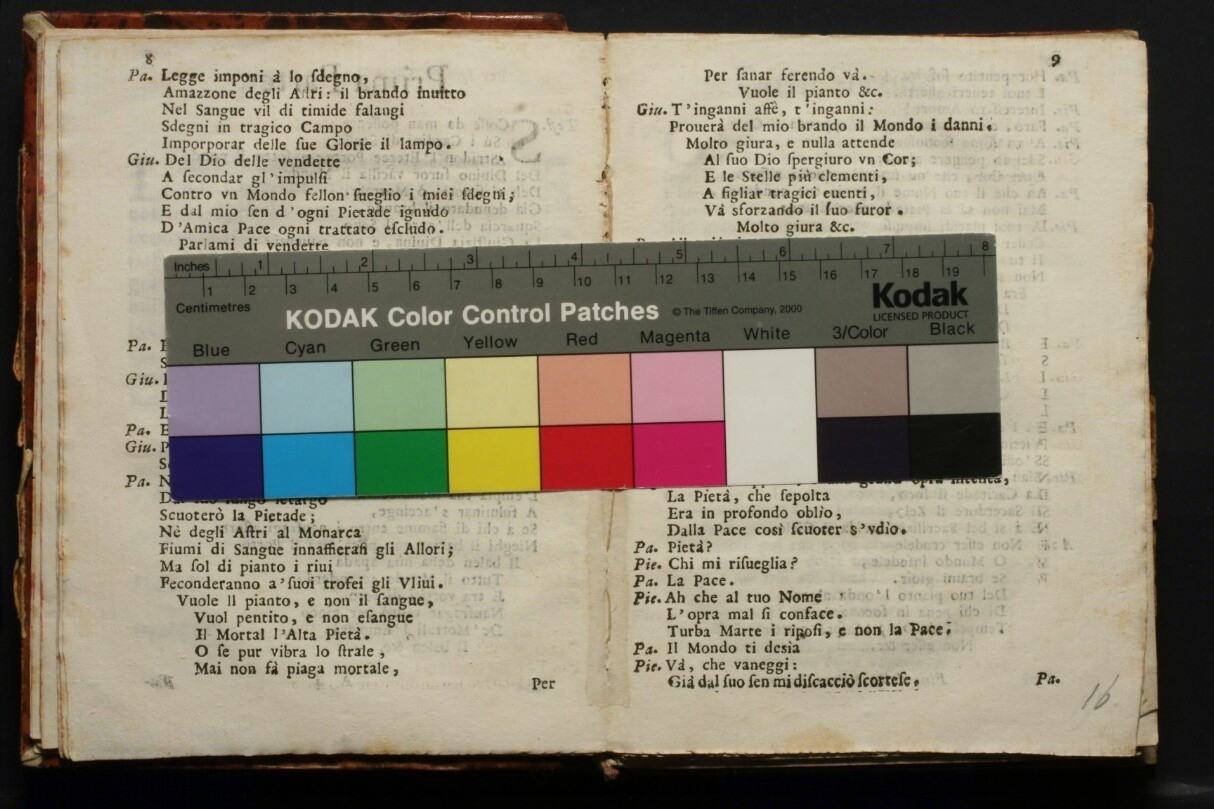 8
Pa. Legge imponi à lo sdegno,
Amazzone degli Astri: il brando inuitto
Nel Sangue vil di timide falangi
Sdegni in tragico Campo
Imporporar delle sue Glorie il lampo.
Giu. Del Dio delle vendette
A secondar gl'impulsi
Contro vn Mondo fellon sueglio i miei sdegni;
E dal mio sen d'ogni Pietade ignudo
D'Amica Pace ogni trattato escludo.
Parlami di vendette
Pa.
Giu.
Pa. E
Giu. P
Pa. N
letargo
Scuoterò la Pietade;
Nè degli Astri al Monarca
Fiumi di Sangue innaffieran gli Allori;
Ma sol di pianto i riui
Feconderanno a'suoi trofei gli Vliui.
Vuole il pianto, e non il sangue,
Vuol pentito, e non esangue
Il Mortal l'Alta Pietà.
O se pur vibra lo strale,
Mai non fà piaga mortale,
Per
9
Per sanar ferendo và.
Vuole il pianto &c.
Giu. T'inganni affè, t'inganni:
Prouerà del mio brando il Mondo i danni.
Molto giura, e nulla attende
Al suo Dio spergiuro vn Cor;
E le Stelle più clementi,
A figliar tragici euenti,
Và sforzando il suo furor.
Molto giura &c.
Inches 1 2 3 4 5 6 7 8
1 2 3 4 5 6 7 8 9 10 11 12 13 14 15 16 17 18 19
Centimetres
KODAK Color Control Patches © The Tiffen Company, 2000
Kodak
LICENSED PRODUCT
Blue Cyan Green Yellow Red Magenta White 3/Color Black
La Pietà, che sepolta
Era in profondo oblio,
Dalla Pace così scuoter s'vdio.
Pa. Pietà?
Pie. Chi mi risueglia?
Pa. La Pace.
Pie. Ah che al tuo Nome
L'opra mal si conface.
Turba Marte i riposi, e non la Pace.
Pa. Il Mondo ti desia
Pie. Và, che vaneggi:
Già dal suo sen mi discacciò scortese,
Pa.
16